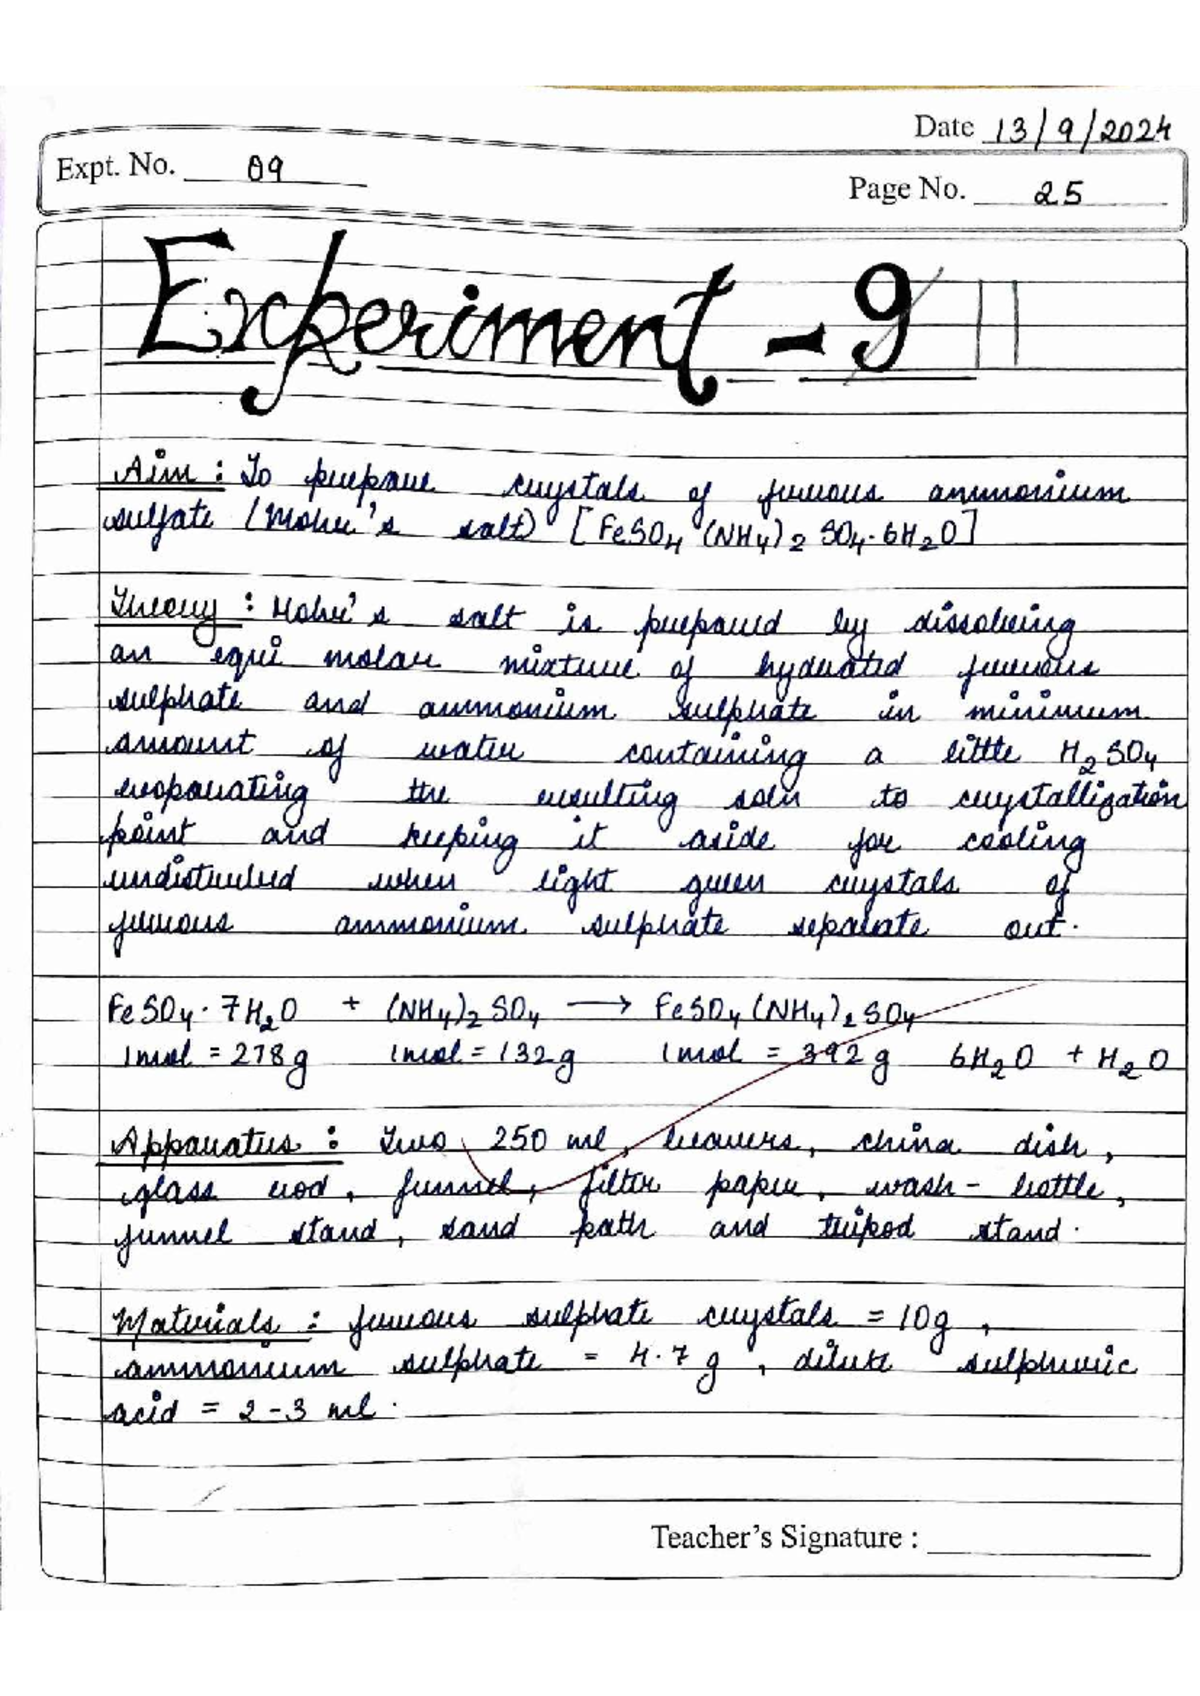 Date 13/9/2024
Expt. No. 09
Page No. 25
Experiment - 9 11
Aim : To prepare crystals of ferrous ammonium
sulfate (Mohr's salt) [FeSO4 (NH4)2 SO4·6H2O]
Theory : Mohr's salt is prepared by dissolving
an equi molar mixture of hydrated ferrous
sulphate and ammonium sulphate in minimum
amount of water containing a little H2SO4
evaporating the resulting soln to crystallization
point and keeping it aside for cooling
undisturbed when light green crystals of
ferrous ammonium sulphate separate out.
FeSO4· 7H2O + (NH4)2 SO4 → FeSO4 (NH4)2 SO4
1mol = 278g 1mol = 132g 1mol = 392g 6H2O + H2O
Apparatus : Two 250 ml, beakers, china dish,
glass rod, funnel, filter paper, wash-bottle,
funnel stand, sand bath and tripod stand.
Materials : ferrous sulphate crystals = 10g,
ammonium sulphate = 4.7 g, dilute sulphuric
acid = 2-3 ml.
Teacher's Signature :